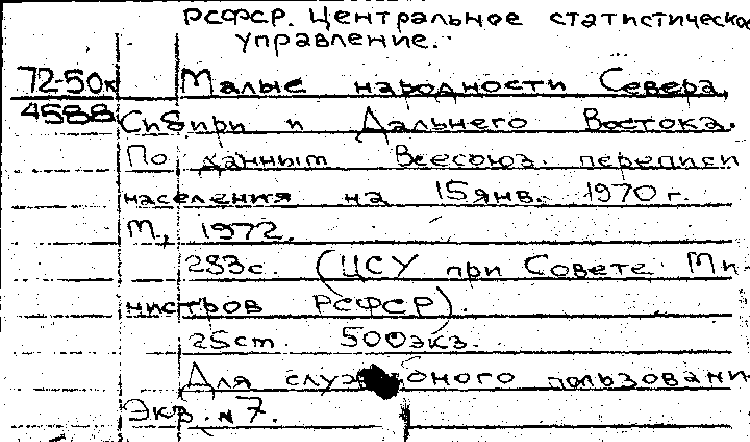 РСФСР. Центральное статистическое
управление.
72-50к Малые народности Севера,
4588 Сибири и Дальнего Востока.
По данным Всесоюз. переписи
населения на 15 янв. 1970 г.
М., 1972.
283с. (ЦСУ при Совете Ми-
нистров РСФСР).
25см. 500экз.
Для служебного пользовани
Экз. № 7.